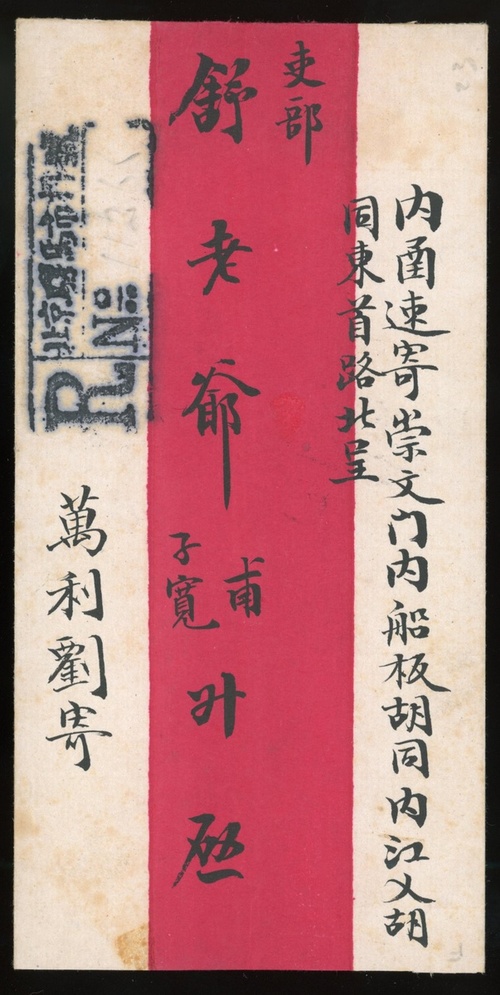 内函速寄崇文门内船板胡同内江乂胡
同東首路北呈
吏部
舒老爺
甫
子寬
升启
萬利劉寄
北京騾馬市
R No